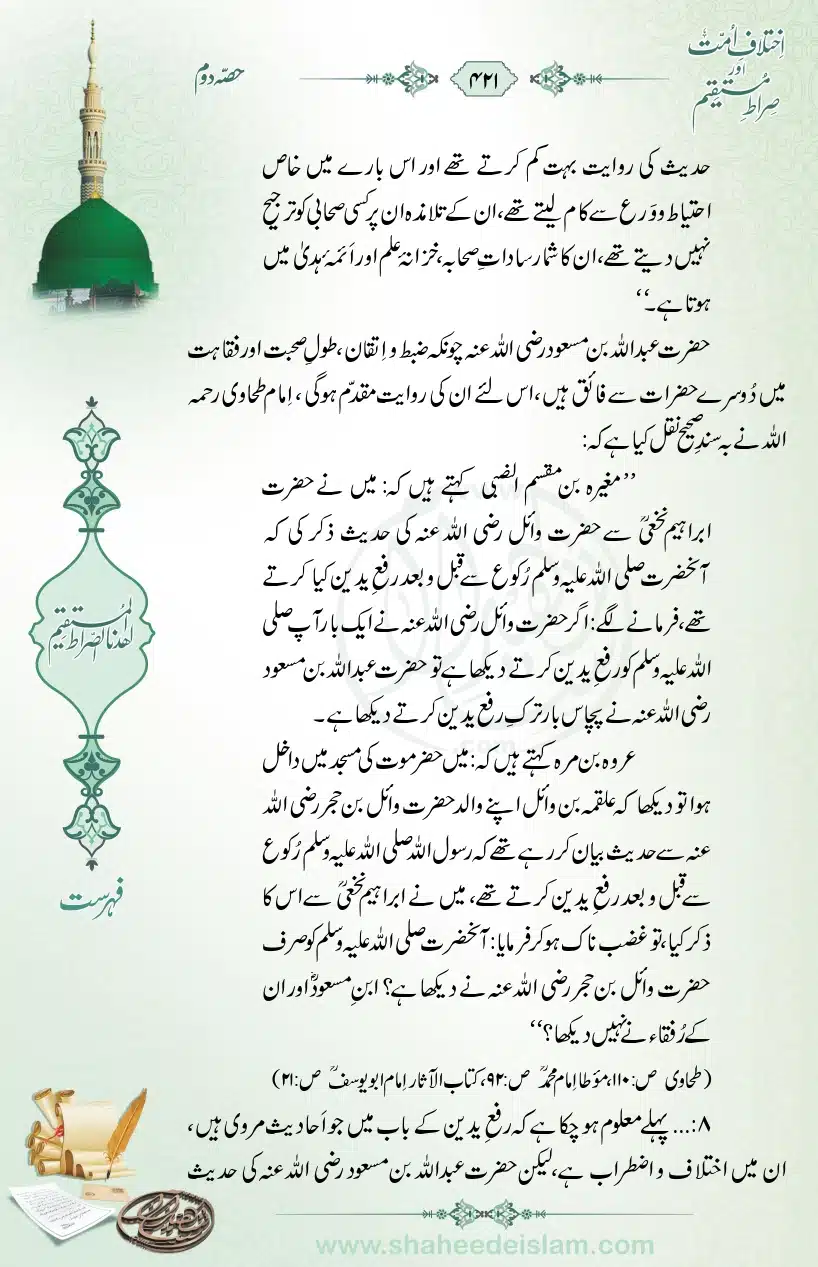 اِختلافِ اُمّت
اور
صِراطِ مُستقیم
۴۲۱
حصّہ دوم
حدیث کی روایت بہت کم کرتے تھے اور اس بارے میں خاص
احتیاط و وَرع سے کام لیتے تھے، ان کے تلامذہ ان پر کسی صحابی کو ترجیح
نہیں دیتے تھے، ان کا شمار ساداتِ صحابہ، خزانۂ علم اور اَئمہ ہُدیٰ میں
ہوتا ہے۔‘‘
حضرت عبداللہ بن مسعود رضی اللہ عنہ چونکہ ضبط و اِتقان، طولِ صحبت اور فقاہت
میں دُوسرے حضرات سے فائق ہیں، اس لئے ان کی روایت مقدّم ہوگی، اِمام طحاوی رحمہ
اللہ نے بہ سندِ صحیح نقل کیا ہے کہ:
’’مغیرہ بن مقسم الضبی کہتے ہیں کہ: میں نے حضرت
ابراہیم نخعیؒ سے حضرت وائل رضی اللہ عنہ کی حدیث ذکر کی کہ
آنحضرت صلی اللہ علیہ وسلم رُکوع سے قبل و بعد رفعِ یدین کیا کرتے
تھے، فرمانے لگے: اگر حضرت وائل رضی اللہ عنہ نے ایک بار آپ صلی
اللہ علیہ وسلم کو رفعِ یدین کرتے دیکھا ہے تو حضرت عبداللہ بن مسعود
رضی اللہ عنہ نے پچاس بار ترکِ رفعِ یدین کرتے دیکھا ہے۔
عروہ بن مرہ کہتے ہیں کہ: میں حضرموت کی مسجد میں داخل
ہوا تو دیکھا کہ علقمہ بن وائل اپنے والد حضرت وائل بن حجر رضی اللہ
عنہ سے حدیث بیان کر رہے تھے کہ رسول اللہ صلی اللہ علیہ وسلم رُکوع
سے قبل و بعد رفعِ یدین کرتے تھے، میں نے ابراہیم نخعیؒ سے اس کا
ذکر کیا، تو غضب ناک ہوکر فرمایا: آنحضرت صلی اللہ علیہ وسلم کو صرف
حضرت وائل بن حجر رضی اللہ عنہ نے دیکھا ہے؟ ابنِ مسعودؓ اور ان
کے رُفقاء نے نہیں دیکھا؟‘‘
(طحاوی ص:۱۱۰، مؤطا اِمام محمدؒ ص:۹۲، کتاب الآثار اِمام ابویوسفؒ ص:۲۱)
۸:... پہلے معلوم ہوچکا ہے کہ رفعِ یدین کے باب میں جو اَحادیث مروی ہیں،
ان میں اختلاف و اضطراب ہے، لیکن حضرت عبداللہ بن مسعود رضی اللہ عنہ کی حدیث
اھدنا الصّراط المُستقیم
فہرست
www.shaheedeislam.com